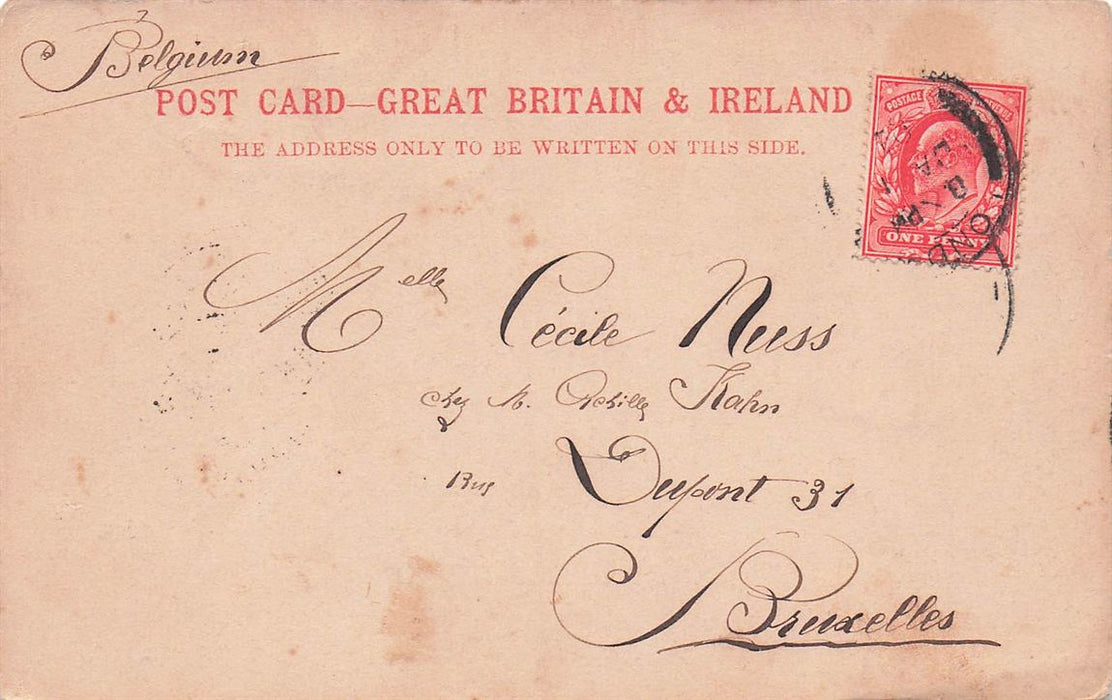 Belgium
POST CARD—GREAT BRITAIN & IRELAND
THE ADDRESS ONLY TO BE WRITTEN ON THIS SIDE.
POSTAGE
ONE PENNY
Melle Cécile Nuss
chez M. Achille Kahn
Rue Dupont 31
Bruxelles